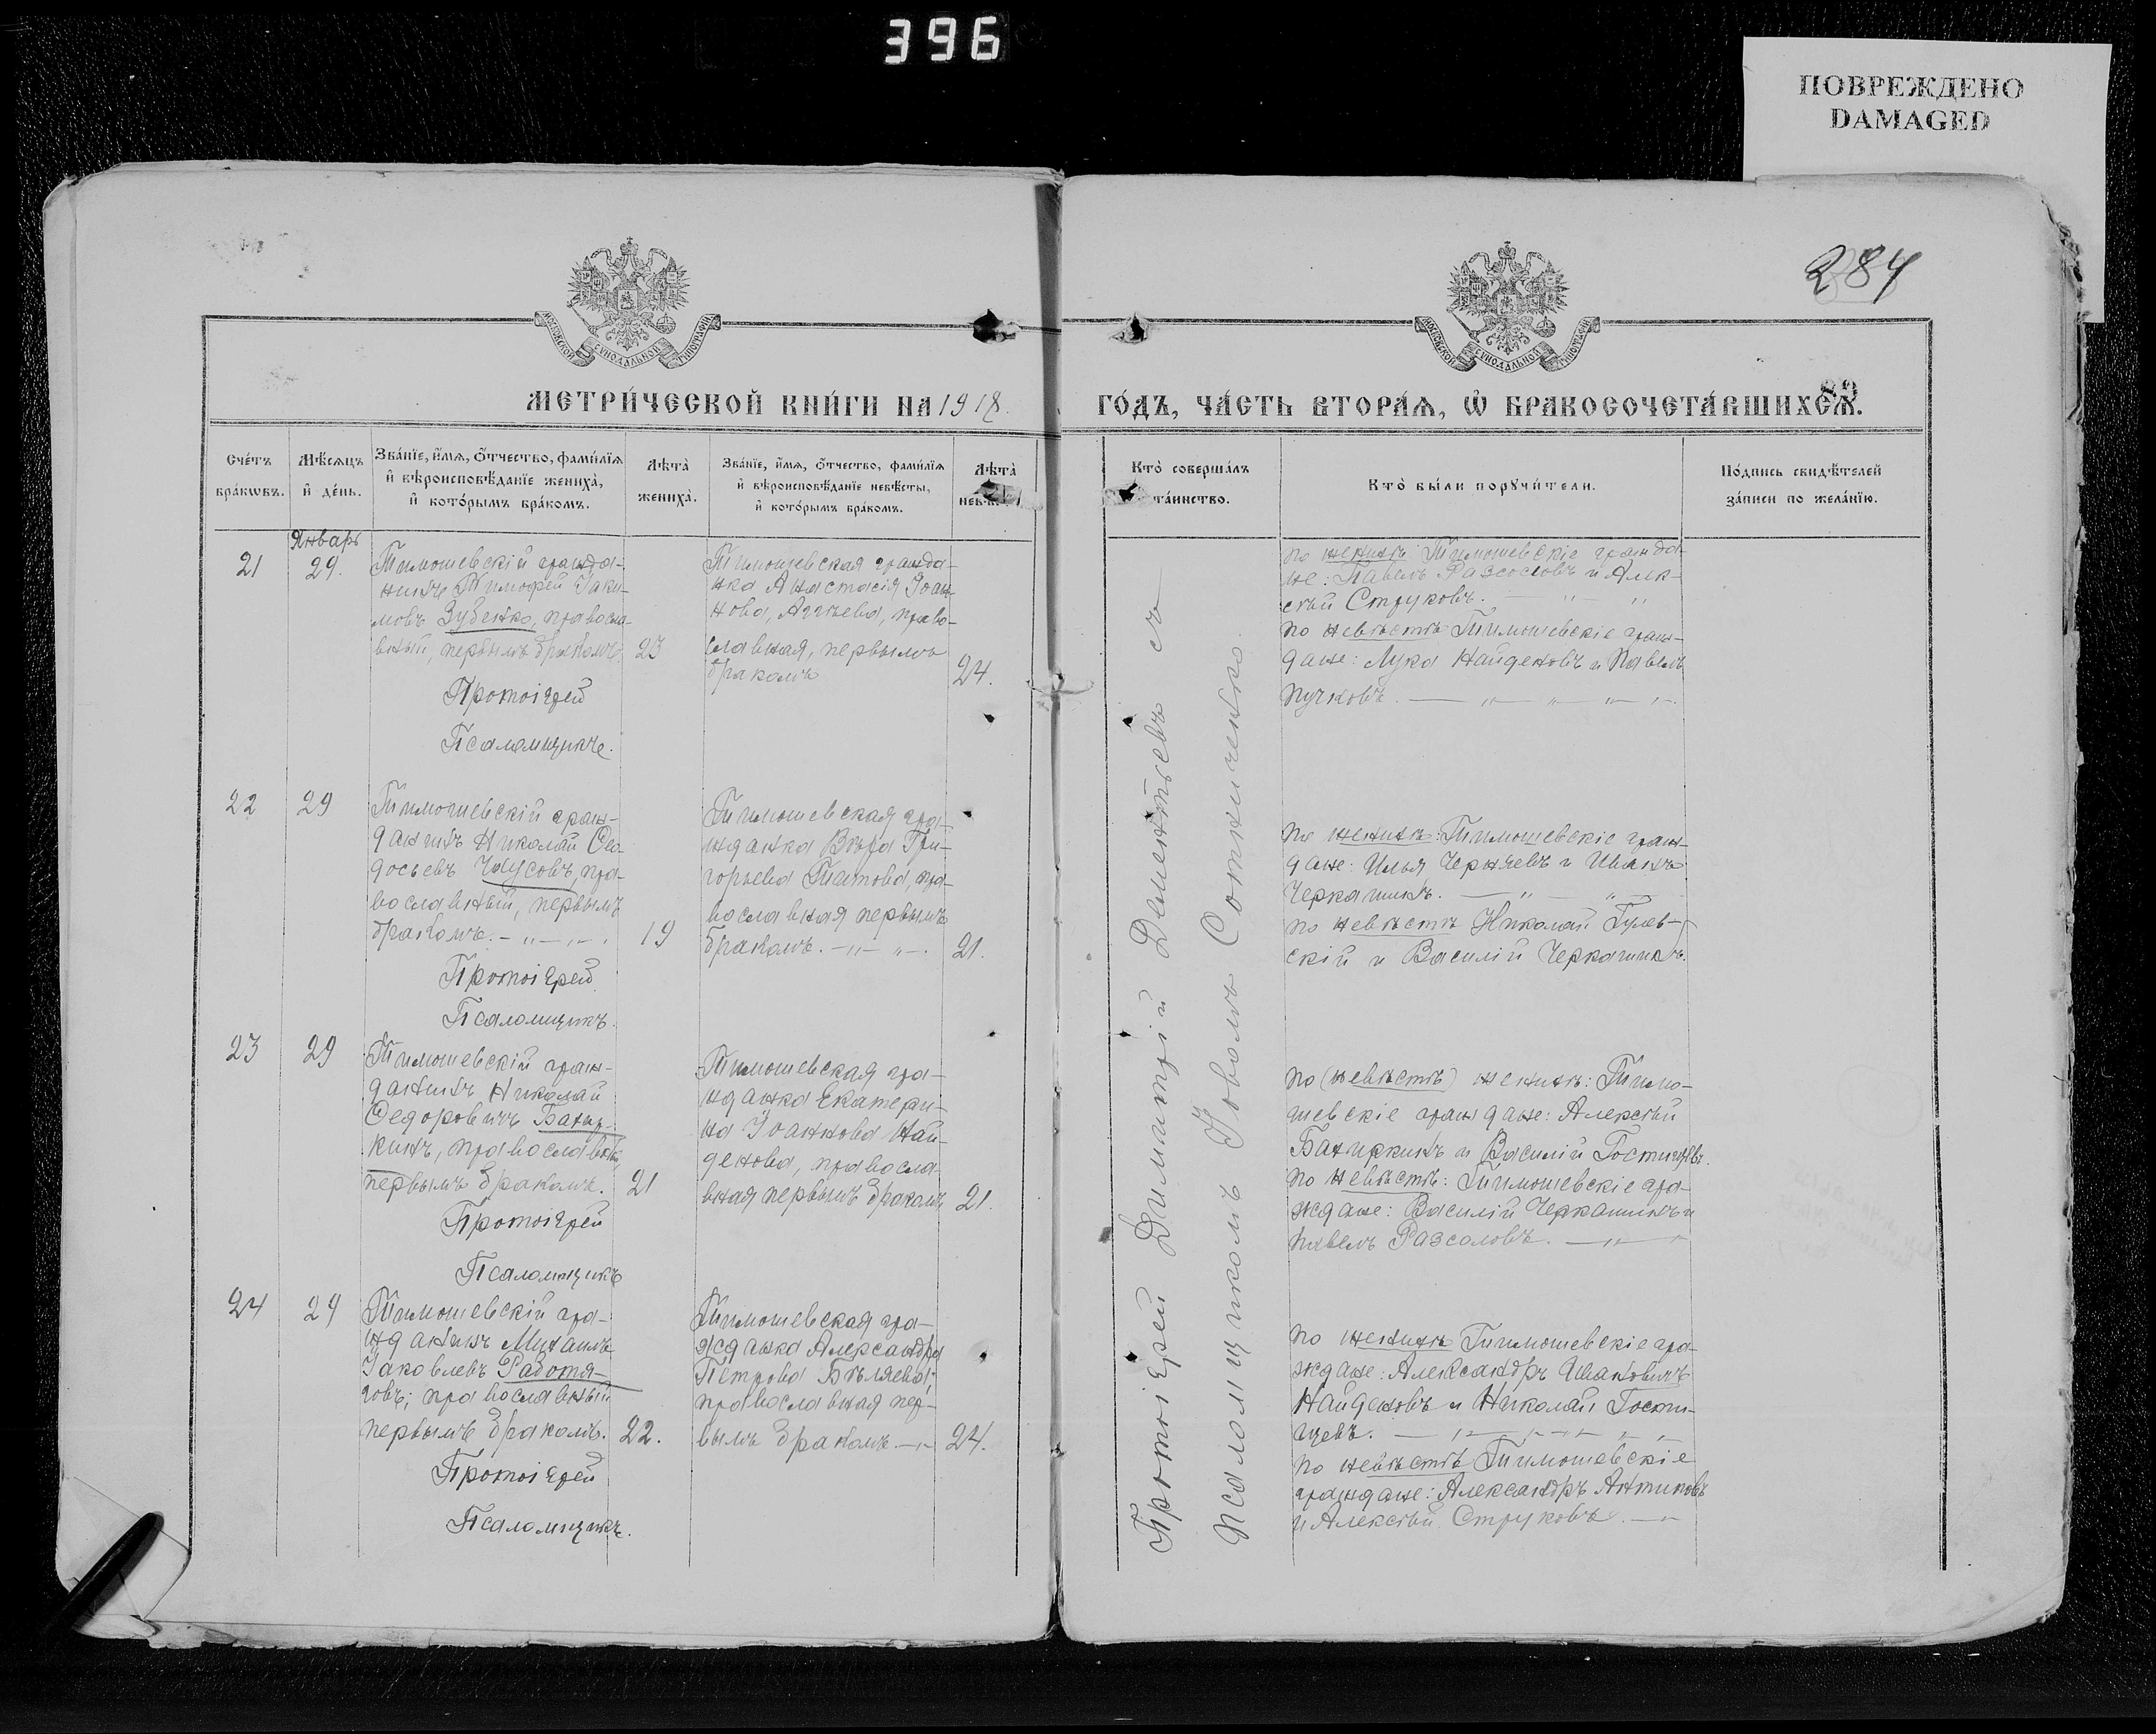 396
ПОВРЕЖДЕНО
DAMAGED
284
МОСКОВСКОЙ СѴНОДАЛЬНОЙ ТИПОГРАФІИ
МОСКОВСКОЙ СѴНОДАЛЬНОЙ ТИПОГРАФІИ
МЕТРИ́ЧЕСКОЙ КНИ́ГИ НА 1918.
ГО́ДЪ, ЧА́СТЬ ВТОРА́Я, Ѡ҆ БРАКОСОЧЕТА́ВШИХСѦ.
83
Сче́тъ
бра́кѡвъ.
Мѣ́сяцъ
и҆ де́нь.
Зва́нїе, и҆́мя, ѻ҆́тчество, фами́лїя
и҆ вѣроисповѣ́данїе жениха̀,
и҆ кото́рымъ бра́комъ.
Лѣ́та̀
жениха̀.
Зва́нїе, и҆́мя, ѻ҆́тчество, фами́лїя
и҆ вѣроисповѣ́данїе невѣ́сты,
и҆ кото́рымъ бра́комъ.
Лѣ́та̀
Кто̀ соверша́лъ
та́инство.
Кто̀ бы́ли порꙋчи́тели.
По́дпись свидѣ́телей
за́писи по жела́нїю.
Январь
21
29.
Тимошевскій гражда-
нинъ Тимофей Іаки-
мовъ Зубенко, правосла-
вный, первымъ бракомъ.
23
Протоіерей
Псаломщикъ.
Тимошевская гражда-
нка Анастасія Іоан-
нова, Аггѣева, право-
славная, первымъ
бракомъ
24.
по женихѣ Тимошевскіе гражда-
не: Павелъ Разсоловъ и Алек-
сѣй Струковъ. — „ — „
по невѣстѣ Тимошевскіе граж-
дане: Лука Найденовъ и Павелъ
Пучковъ. — „ — „ — „ — „ —.
22
29
Тимошевскій граж-
данинъ Николай Ѳео-
досьевъ Чаусовъ, пра-
вославный, первымъ
бракомъ. — „ — „ — .
19
Протоіерей
Псаломщикъ.
Тимошевская гра-
жданка Вѣра Гри-
горьева Титова, пра-
вославная первымъ
бракомъ. — „ — „ —.
21.
по женихѣ: Тимошевскіе граж-
дане: Илья Черняевъ и Иванъ
Черкашинъ. — „ — „ —
по невѣстѣ Николай Гулев-
скій и Василій Черкашинъ.
23
29
Тимошевскій граж-
данинъ Николай
Ѳедоровичъ Батыр-
кинъ, православный
первымъ бракомъ.
21
Протоіерей
Псаломщикъ
Тимошевская гра-
жданка Екатери-
на Іоаннова Най-
денова, правосла-
вная первымъ бракомъ
21.
по (невѣстѣ) женихѣ: Тимо-
шевскіе граждане: Алексѣй
Батиркинъ и Василій Гостищевъ.
по невѣстѣ: Тимошевскіе гра-
ждане: Василій Черкашинъ и
Павелъ Разсоловъ. — „ — „
24
29
Тимошевскій гра-
жданинъ Михаилъ
Іаковлевъ Работя-
говъ; православный
первымъ бракомъ.
22.
Протоіерей
Псаломщикъ.
Тимошевская гра-
жданка Александра
Петрова Бѣляева;
православная пер-
вымъ бракомъ — „ —
24.
по женихѣ Тимошевскіе гра-
ждане: Александръ Ивановичъ
Найденовъ и Николай Гости-
щевъ. — „ — „ — „ — „ —
по невѣстѣ Тимошевскіе
граждане: Александръ Антиповъ
и Алексѣй Струковъ. — „ —
Протоіерей Димитрій Дементьевъ съ —
псаломщикомъ Іовомъ Сотниченко.